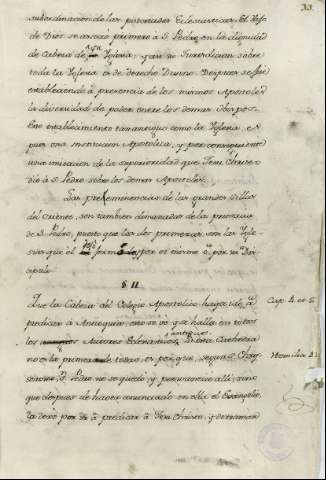 33.
subordinacion de las potestades Eclesiasticas. El Hijo
de Dios marcó primero à S. Pedro en la dignidad
de Cabeza de su Iglesia; y asi su Jurisdiccion sobre
toda la Iglesia es de derecho Divino. Despues se fue
estableciendo à presencia de los mismos Apostoles
la diversidad de poder entre los demas Obispos.
Este establecimiento tan antiguo como la Iglesia, es
pues una institucion Apostolica, y por consiguiente
una imitacion de la superioridad que Jesu Christo
dió à S. Pedro sobre los demas Apostoles.
Las preheminencias de las grandes sillas
del oriente, son tambien dimanadas de la primacia
de S. Pedro, puesto que las dos primeras, son las Igle-
sias que el formó por si mismo ò por su Dis-
cipulo.
§ II
Que la Cabeza del Colegio Apostolico haya ido à
predicar à Antioquia, esto se vé y se halla en todos
los antiguos Autores Eclesiasticos.
no es la primera de todas, es por que, segun S. Chry-
sostomo, S. Pedro no se quedó, y permaneció alli; sino
que despues de haver anunciado en ella el Evangelio,
la dexó por ir à predicar à Jesu Christo, y derramar
Cap. 4. en S.
Homilia 42